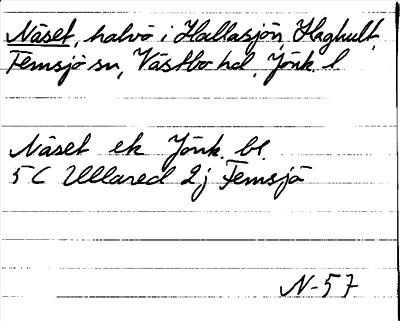 Näset, halvö i Hallasjön, Haghult,
Femsjö sn, Västbo hd, Jönk. l
Näset ek Jönk. bl.
5 C Ullared 2j Femsjö
N-57